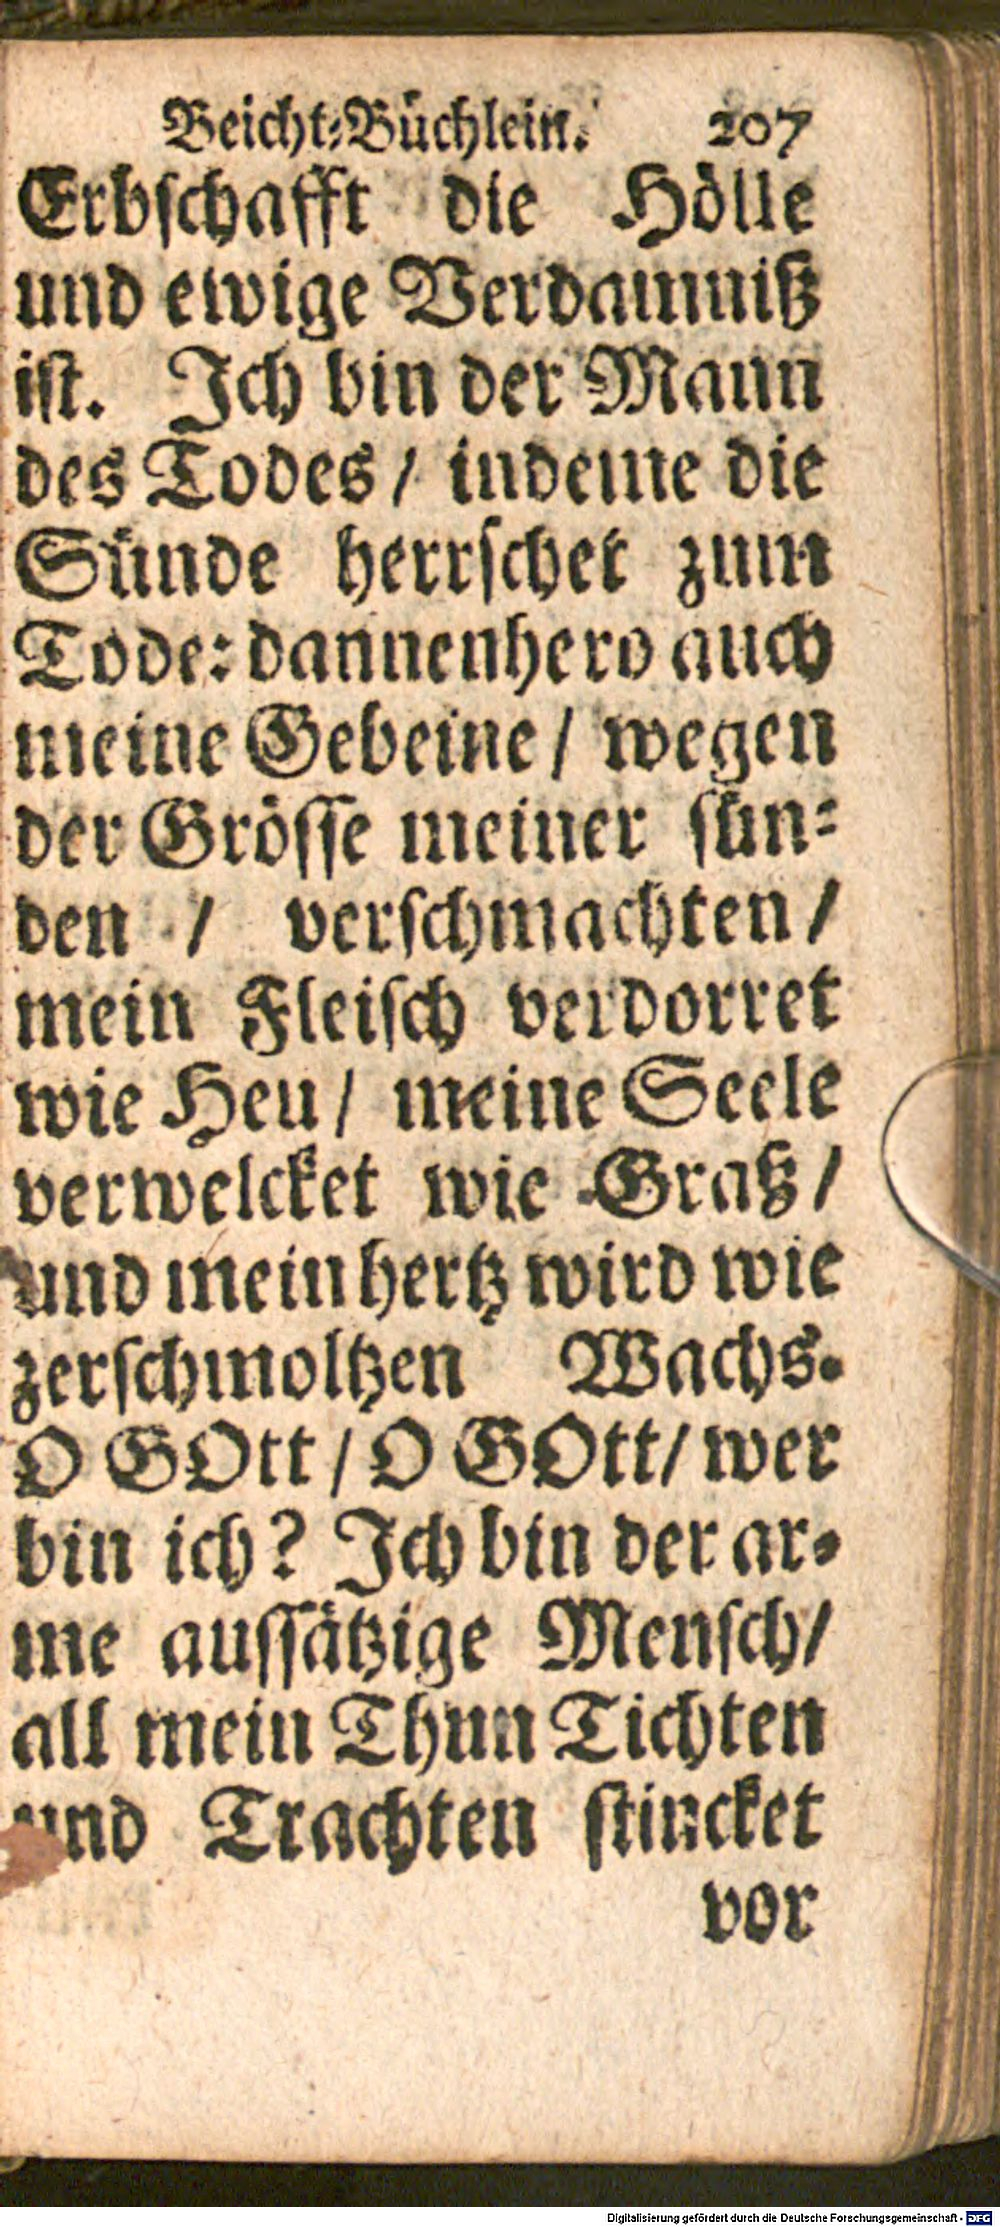 Beicht-Büchlein. 207
Erbschafft die Hölle
und ewige Verdamniß
ist. Ich bin der Mann
des Todes / indeme die
Sünde herrschet zum
Tode: dannenhero auch
meine Gebeine / wegen
der Grösse meiner sün-
den / verschmachten /
mein Fleisch verdorret
wie Heu / meine Seele
verwelcket wie Graß /
und mein hertz wird wie
zerschmoltzen Wachs.
O GOtt / O GOtt / wer
bin ich? Ich bin der ar-
me aussätzige Mensch /
all mein Thun Tichten
und Trachten stincket
vor
Digitalisierung gefördert durch die Deutsche Forschungsgemeinschaft - DFG